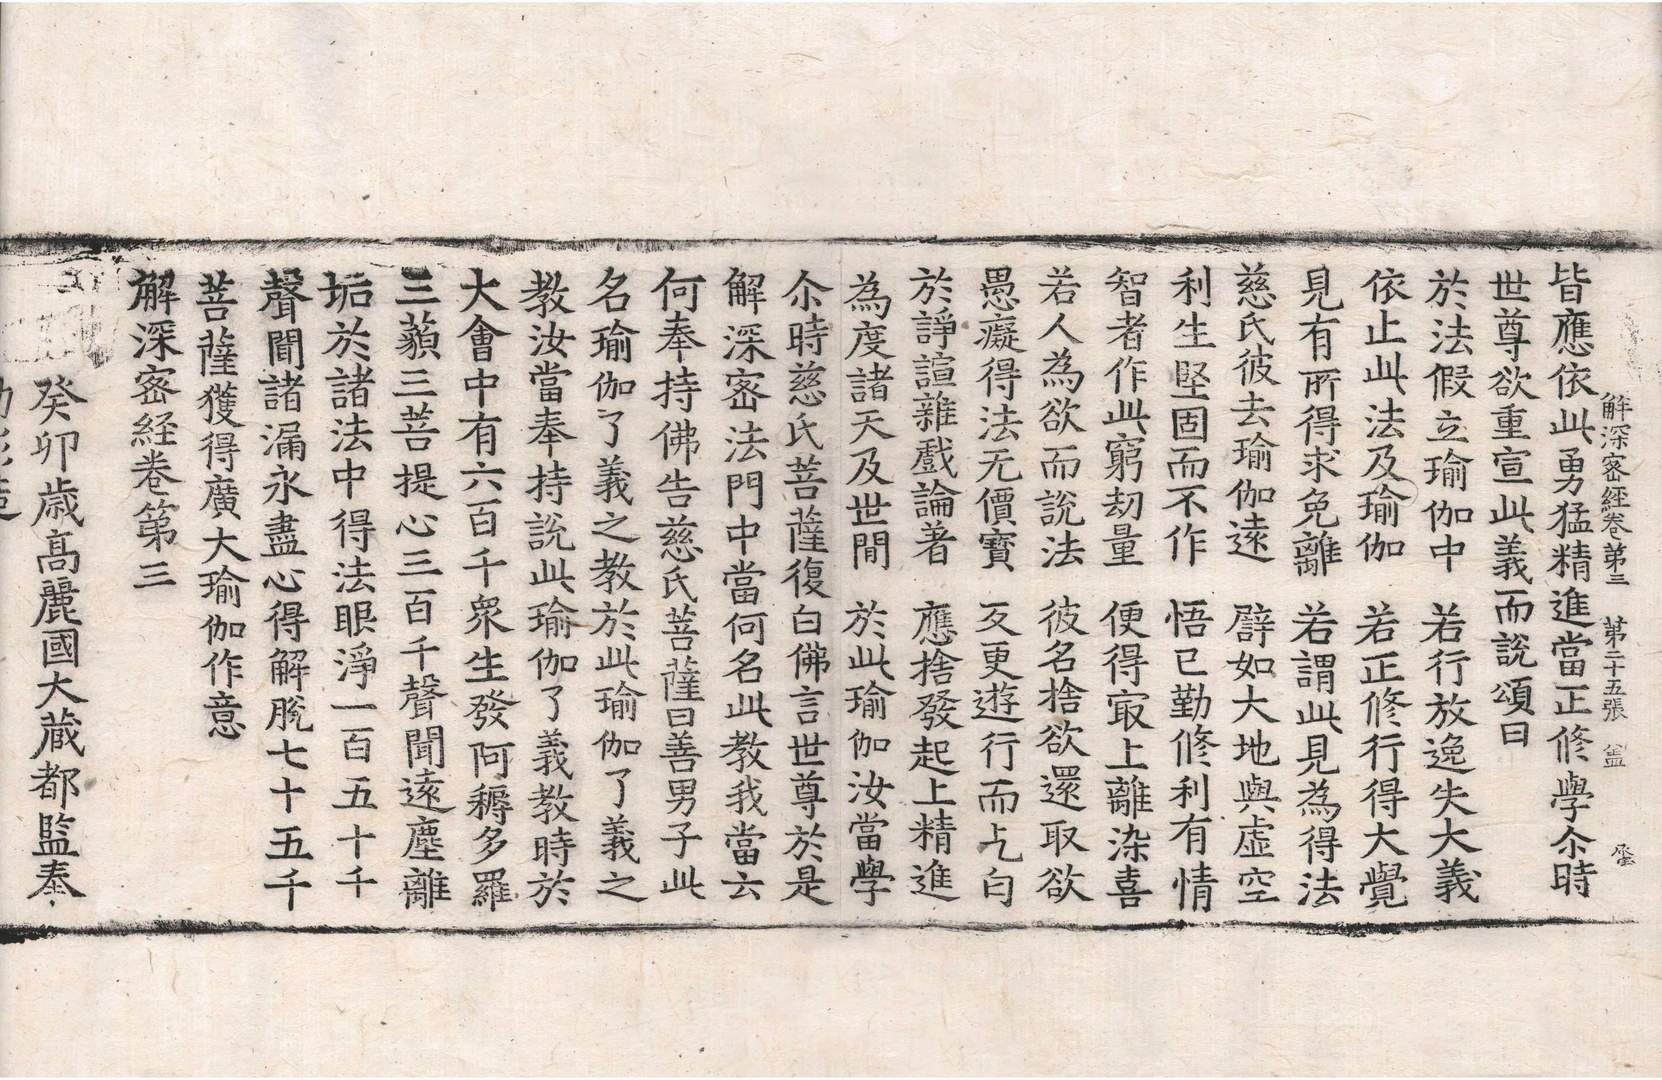 解深密經卷第三 第二十五張 盁
皆應依此勇猛精進當正修學尒時
世尊欲重宣此義而說頌曰
於法假立瑜伽中 若行放逸失大義
依止此法及瑜伽 若正修行得大覺
見有所得求免離 若謂此見為得法
慈氏彼去瑜伽遠 譬如大地與虛空
利生堅固而不作 悟已勤修利有情
智者作此窮劫量 便得㝡上離染喜
若人為欲而說法 彼名捨欲還取欲
愚癡得法无價寶 反更遊行而乞匃
於諍諠雜戲論著 應捨發起上精進
為度諸天及世間 於此瑜伽汝當學
尒時慈氏菩薩復白佛言世尊於是
解深密法門中當何名此教我當云
何奉持佛告慈氏菩薩曰善男子此
名瑜伽了義之教於此瑜伽了義之
教汝當奉持說此瑜伽了義教時於
大會中有六百千衆生發阿耨多羅
三藐三菩提心三百千聲聞遠塵離
垢於諸法中得法眼淨一百五十千
聲聞諸漏永盡心得解脫七十五千
菩薩獲得廣大瑜伽作意
解深密經卷第三
癸卯歲高麗國大藏都監奉